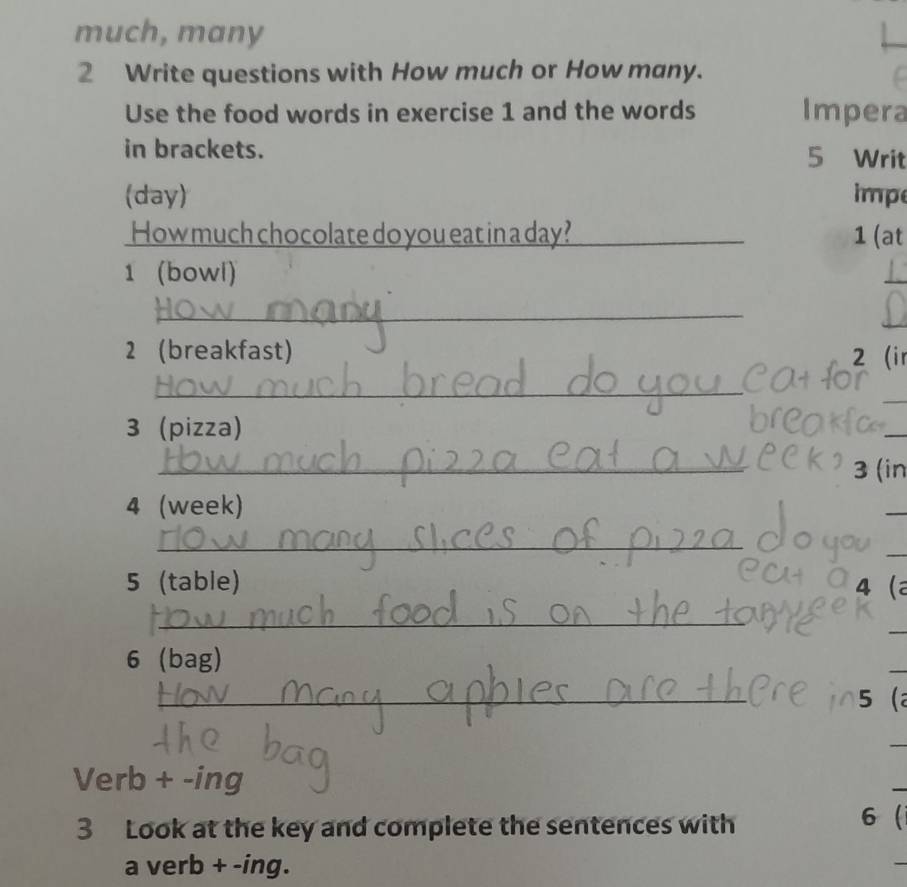 much, many
2 Write questions with How much or How many.
Use the food words in exercise 1 and the words
in brackets.
(day)
How much chocolate do you eat in a day?
1 (bowl)
How many
2 (breakfast)
How much bread do you eat for
3 (pizza)
How much pizza eat a week?
4 (week)
How many slices of pizza do you
eat a week
5 (table)
How much food is on the
6 (bag)
How many apples are there in
the bag
Verb + -ing
3 Look at the key and complete the sentences with
a verb + -ing.
Impera
5 Writ
impe
1 (at
2 (in
3 (in
4 (a
5 (a
6 (i